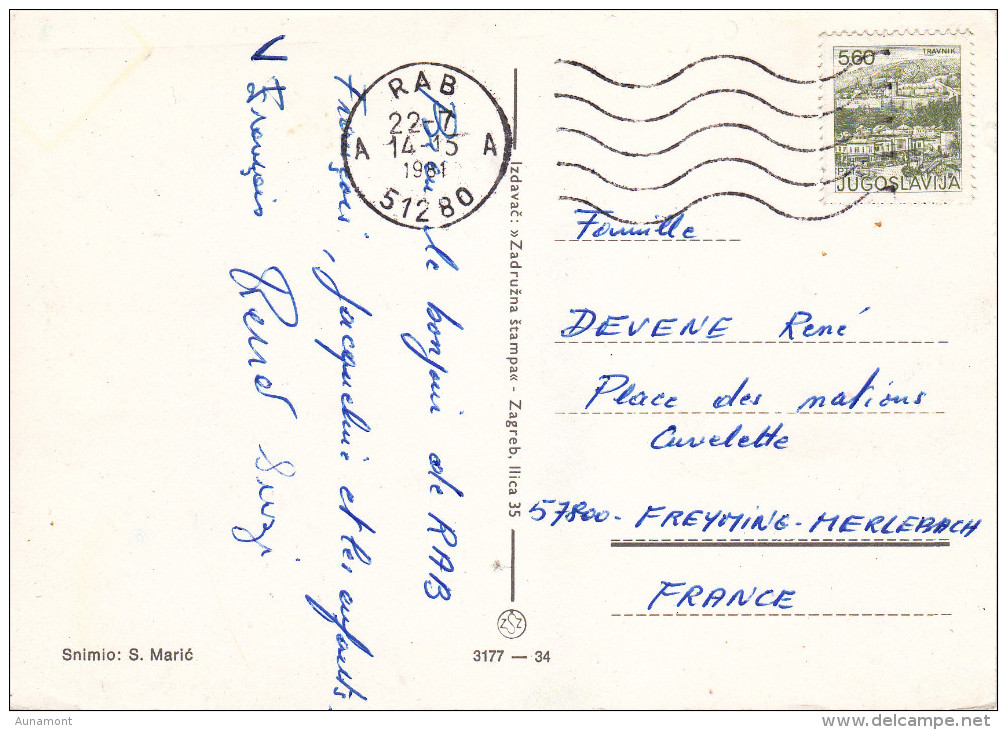 RAB
22-7
14-15
A A
1981
51280
5.60
TRAVNIK
JUGOSLAVIJA
le bonjour de RAB
François, Jacqueline et les enfants.
François
René Suzi
Izdavač: »Zadružna štampa« - Zagreb, Ilica 35
Famille
DEVENE René
Place des nations
Cuvelette
57800 - FREYMING - MERLEBACH
FRANCE
Snimio: S. Marić
3177 — 34
Aunamont
delcampe.net